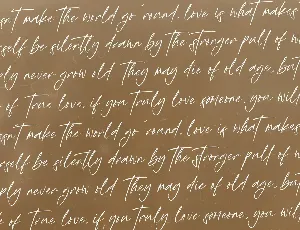 sn't make the world go 'round. love is what makes
self be silently drawn by the stronger pull of w
ply never grow old They may die of old age, but
of True love, if you Truly love someone, you will
esn't make the world go 'round. love is what makes
rself be silently drawn by the stronger pull of w
ply never grow old They may die of old age, but
of True love, if you Truly love someone, you will